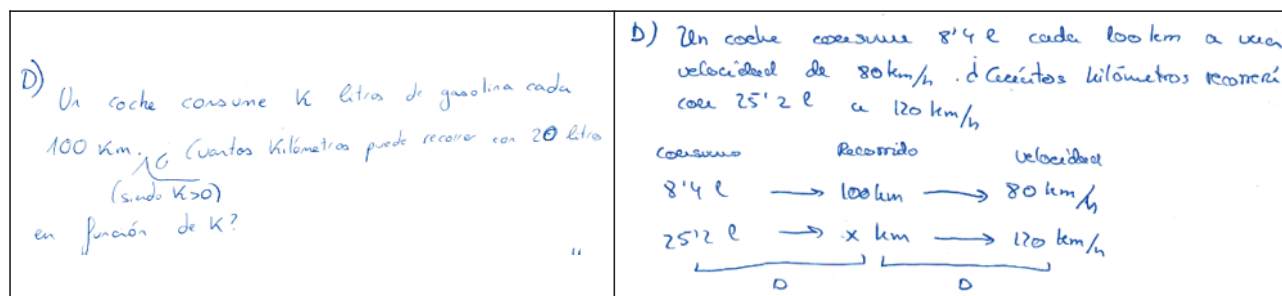 D)
Un coche consume K litros de gasolina cada
100 Km. ¿Cuantos Kilómetros puede recorrer con 20 litros
(siendo K>0)
en función de K?
D) Un coche consume 8'4 l cada 100 km a una
velocidad de 80 km/h. ¿Cuántos kilómetros recorrerá
con 25'2 l a 120 km/h
Consumo Recorrido Velocidad
8'4 l → 100 km → 80 km/h
25'2 l → x km → 120 km/h
D D